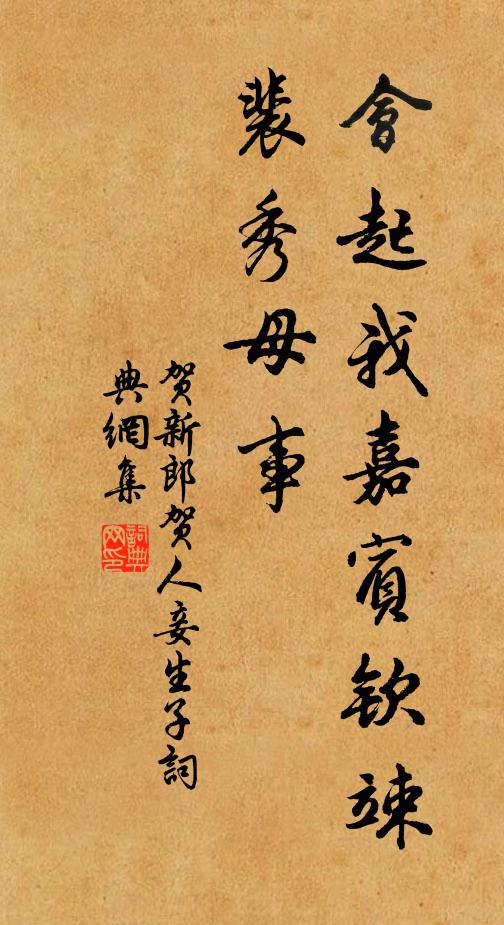 會起我嘉賓欽竦
裴秀母事
賀新郎賀人妾生子詞
典網集
詞典
网印